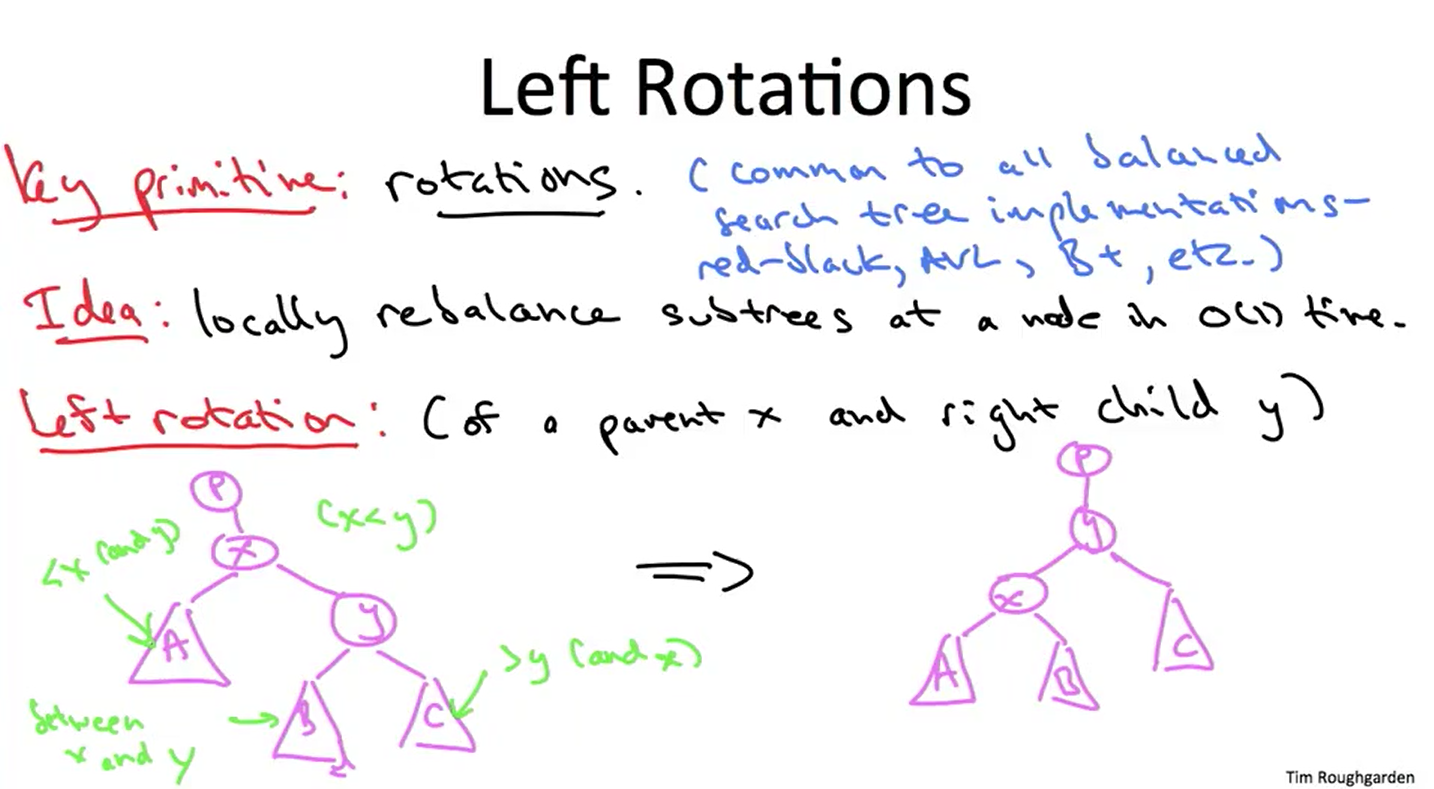 Left Rotations
Key primitive: rotations. (common to all balanced
search tree implementations-
red-black, AVL, B+, etc.)
Idea: locally rebalance subtrees at a node in O(1) time.
Left rotation: (of a parent x and right child y)
P
P
(x<y)
<x (and y)
x
y
y
x
A
>y (and x)
C
A
B
between
x and y
B
C
Tim Roughgarden